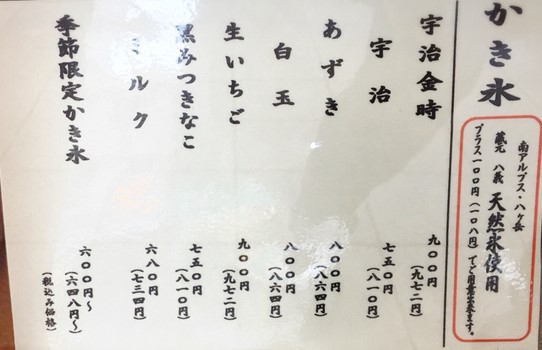 かき氷
南アルプス・八ヶ岳
蔵元 八義 天然氷使用
プラス一〇〇円(一〇八円)でご用意出来ます。
宇治金時 九〇〇円(九七二円)
宇治 七五〇円(八一〇円)
あずき 八〇〇円(八六四円)
白玉 八〇〇円(八六四円)
生いちご 九〇〇円(九七二円)
黒みつきなこ 七五〇円(八一〇円)
ミルク 六八〇円(七三四円)
季節限定かき氷 六〇〇円~(六四八円~)
(税込み価格)